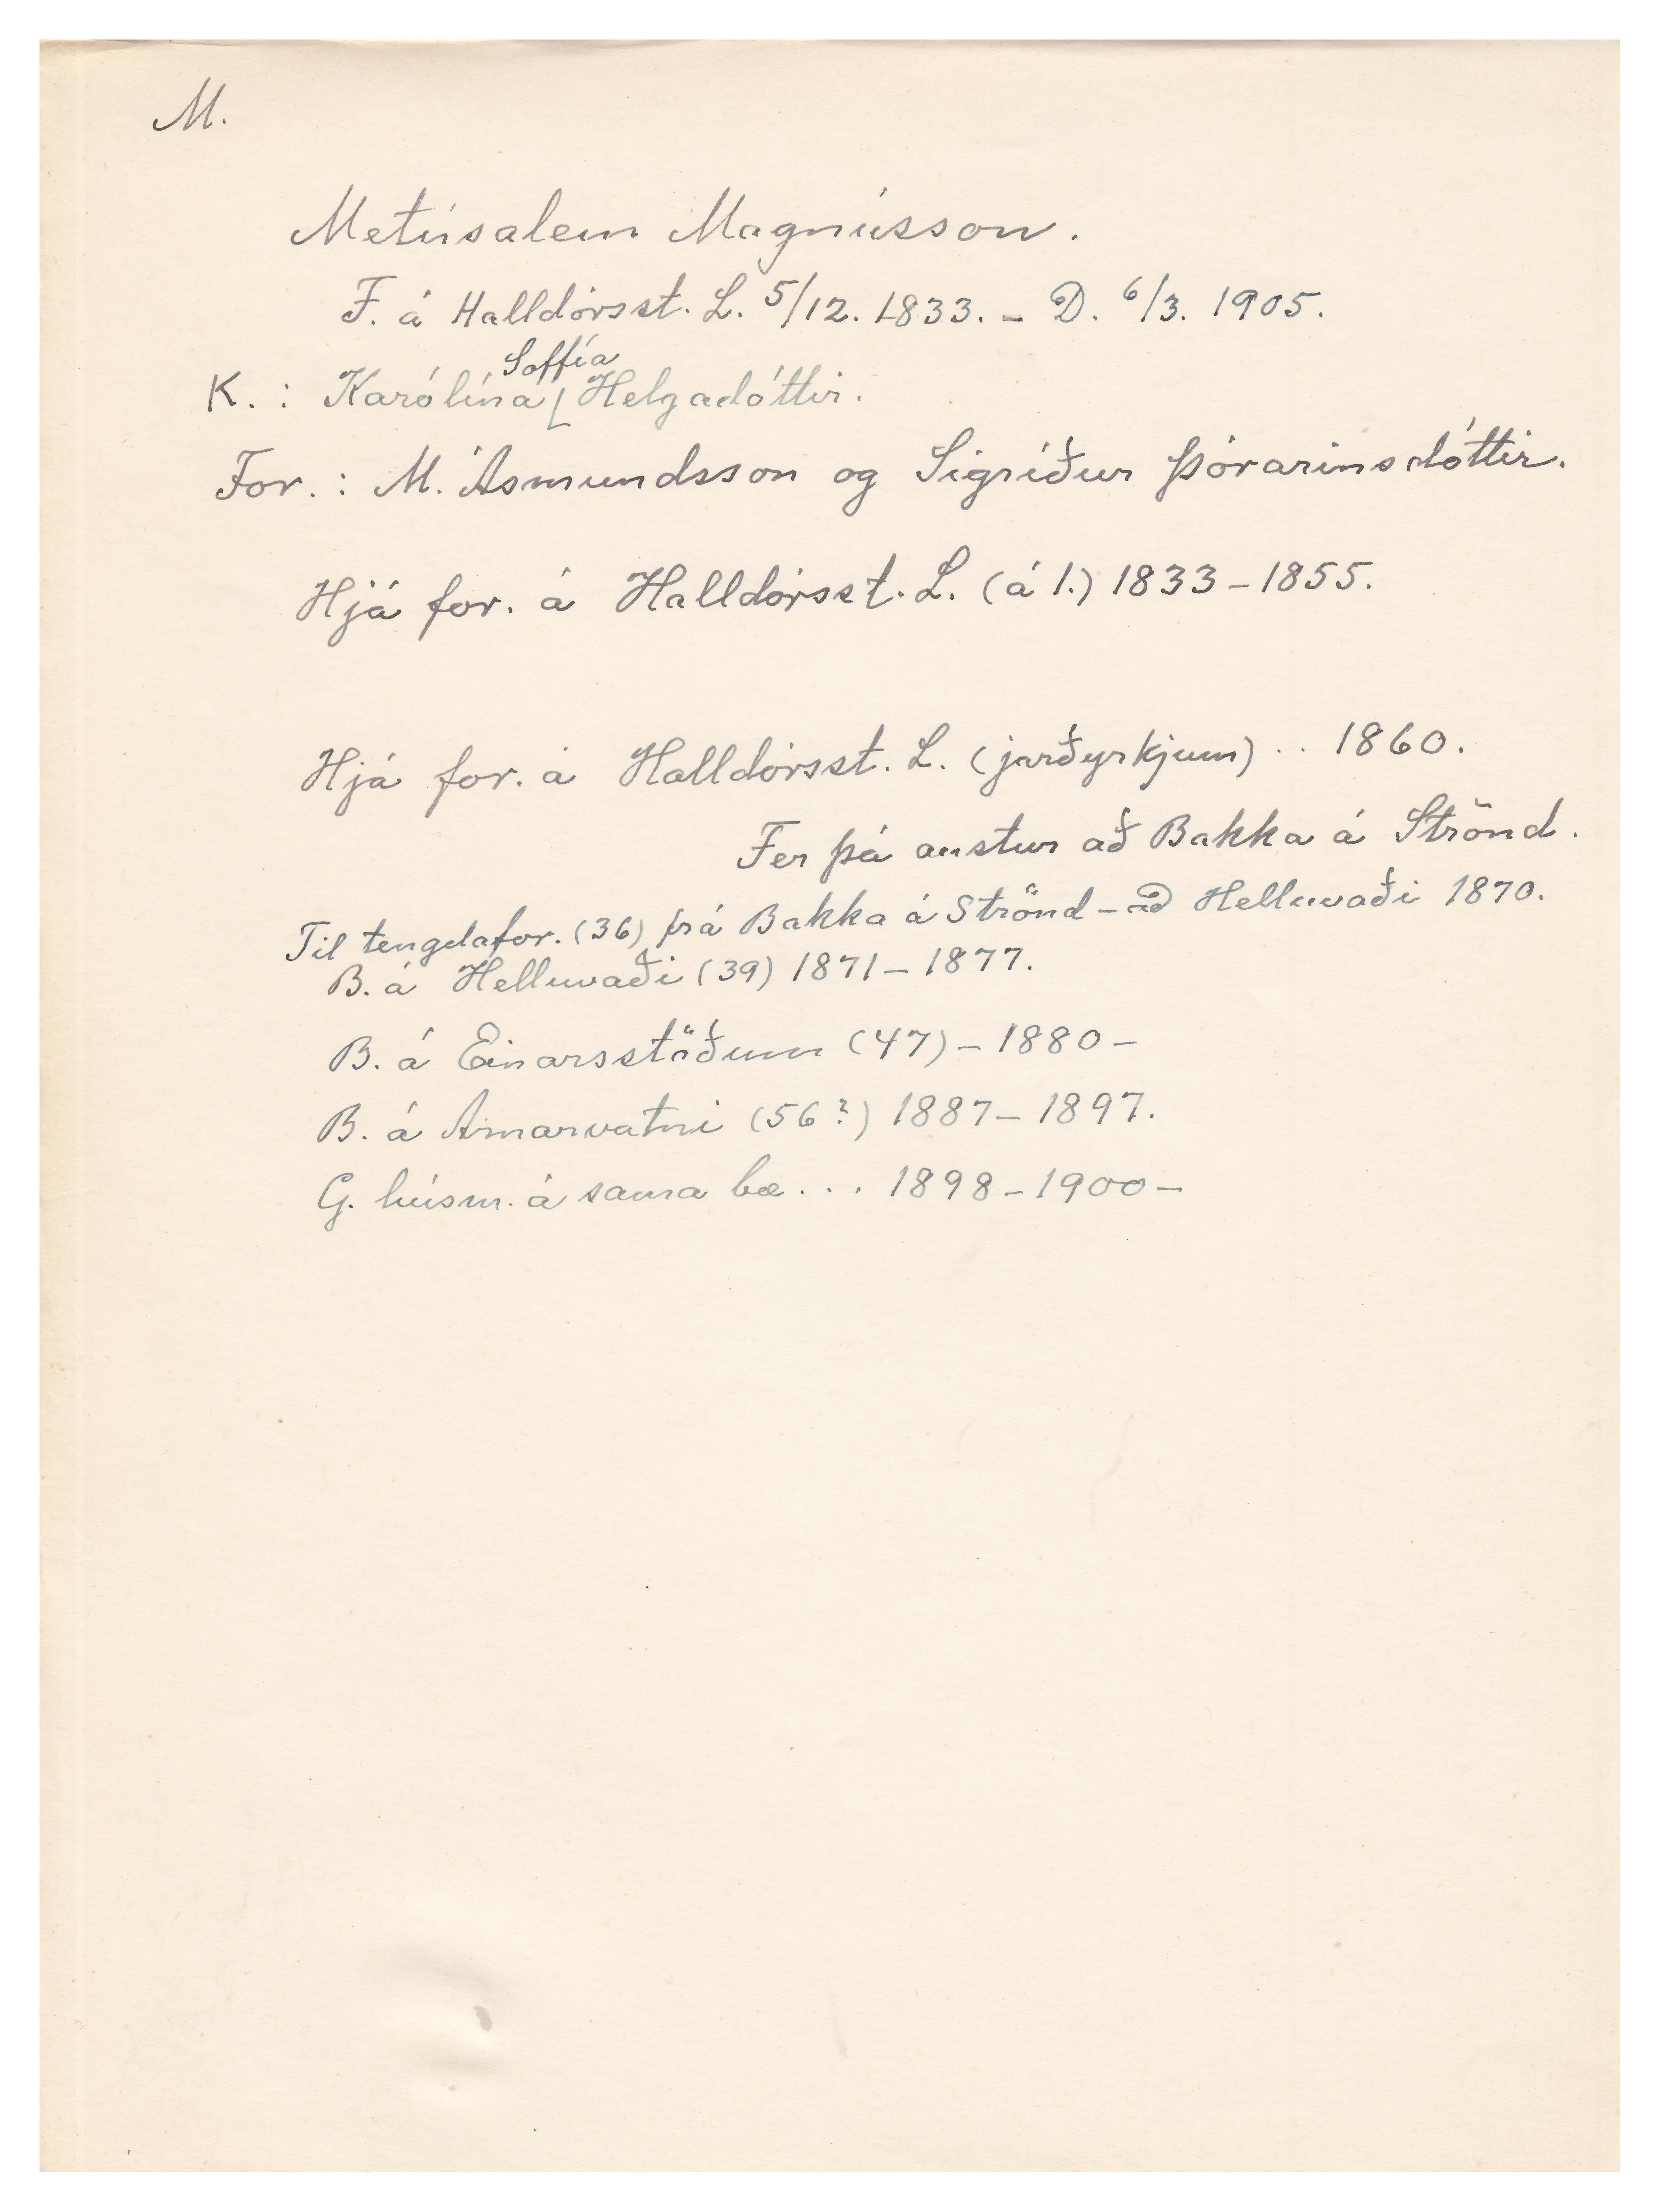 M.
Metúsalem Magnússon.
F. á Halldórsst. L. 5/12. 1833. – D. 6/3. 1905.
K. : Karólína Soffía Helgadóttir.
For. : M. Ásmundsson og Sigríður Þórarinsdóttir.
Hjá for. á Halldórsst. L. (á 1.) 1833 – 1855.
Hjá for. á Halldórsst. L. (jarðyrkjum) .. 1860.
Fer þá austur að Bakka á Strönd.
Til tengdafor. (36) frá Bakka á Strönd – að Helluvaði 1870.
B. á Helluvaði (39) 1871 – 1877.
B. á Einarsstöðum (47) – 1880 –
B. á Arnarvatni (56?) 1887 – 1897.
G. húsm. á sama bæ . . . 1898 – 1900 –